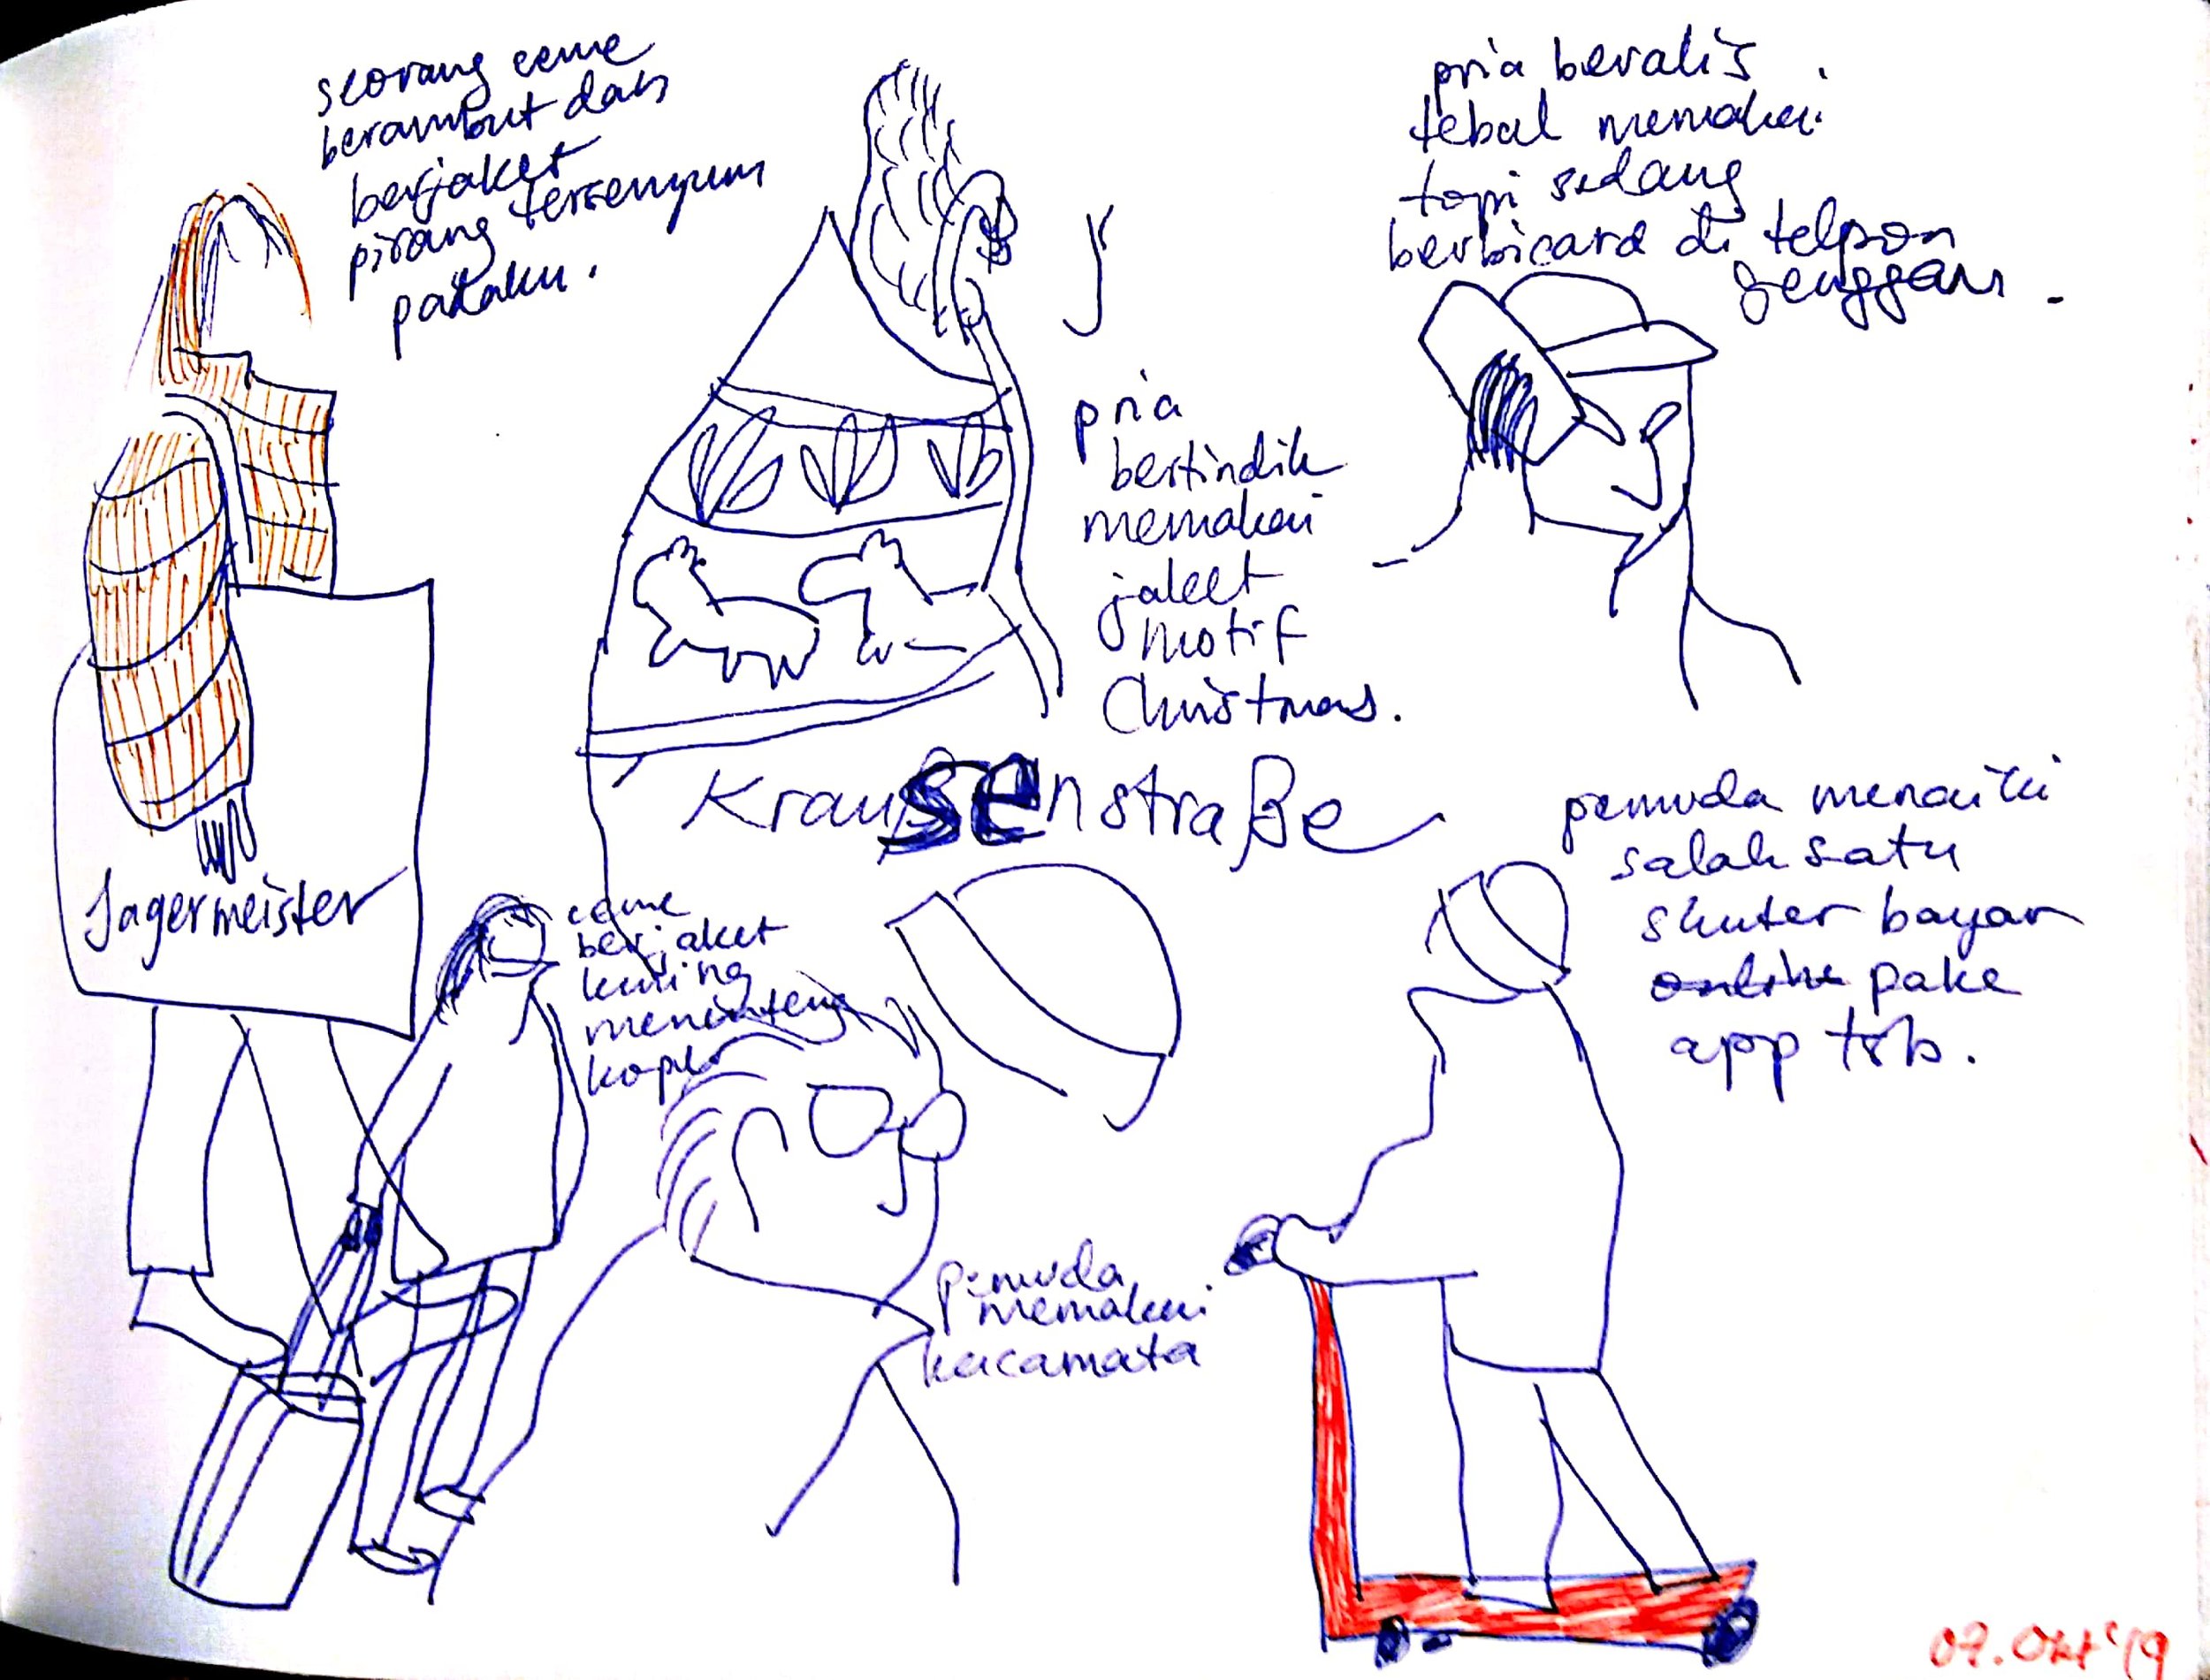 seorang cewe
berambut dan
berjaket
pirang tersenyum
padaku.
pria beralis
tebal memakai
topi sedang
berbicara di telpon
genggam.
pria
bertindik
memakai
jaket
motif
Christmas.
Kraußsenstraße
Jagermeister
cewe
berjaket
kuning
menenteng
koper
pemuda menaiki
salah satu
skuter bayar
online pake
app tsb.
pemuda
memakai
kacamata
07. Okt '19